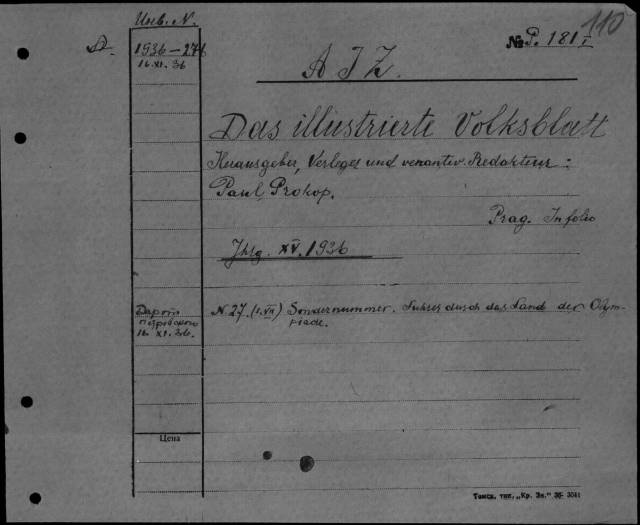 110
Инв. N.
D.
1936-276
16.XI.36
№ P. 181 I
A I Z.
Das illustrierte Volksblatt
Herausgeber, Verleger und verantw. Redakteur:
Paul Prokop.
Prag. In folio
Jhrg. XV. 1936
N 27. (1.VII) Sondernummer. durch das Land der Olym-
piade.
16. XI. 36.
Цена
Томск. тип. „Кр. Зн." 36 3041